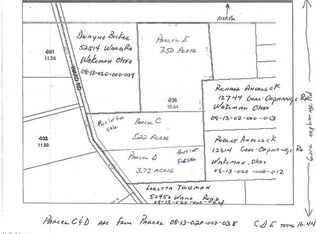 NORTH
Dwayne Becker
52514 Ward Rd
Wakeman Ohio
08-13-020-000-039
Parcel E
7.50 Acres
-031
11.74
WARD RD
-038
16.44
Richard Andolsek
12744 Gore-Orphanage Rd
Wakeman Ohio
08-13-020-000-013
Parcel C
5.22 Acres
Robert Andolsek
12814 Gore-Orphanage Rd
Wakeman, Ohio
08-13-020-000-012
-032
11.88
Parcel D
3.72 Acres
Loretta
52950 Ward Road
Gore Orphanage Rd
Parcel C & D are from Parcel 08-13-020-000-038
C D E Total 16.44